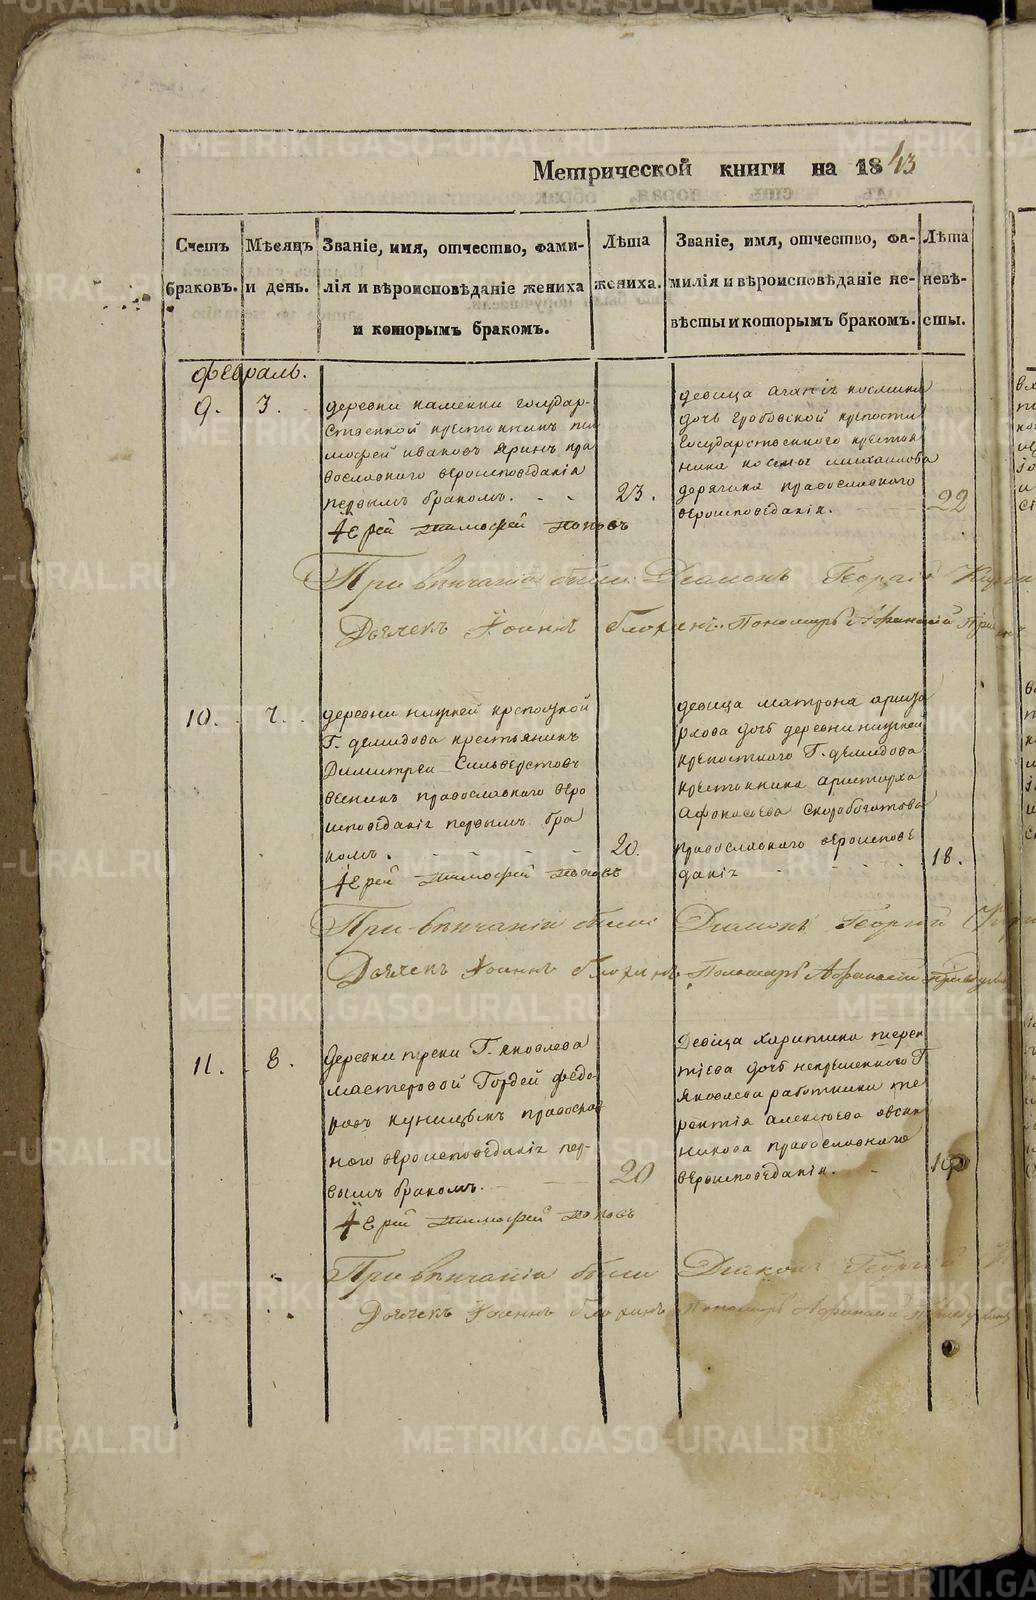 Метрической книги на 1843
Счетъ браковъ.
Мѣсяцъ и день.
Званіе, имя, отчество, фами-
лія и вѣроисповѣданіе жениха
и которымъ бракомъ.
Лѣта жениха.
Званіе, имя, отчество, фа-
милія и вѣроисповѣданіе не-
вѣсты и которымъ бракомъ.
Лѣта невѣ-
сты.
февраль.
9.
3.
деревни каменки государ-
ственной крестьянинъ ти
мофей ивановъ Яринъ пра
вославнаго вероисповеданія
первымъ бракомъ.
23.
девица агапія космина
дочь гробовской крепости
государственнаго крестья
нина космы михаилова
дерягина православнаго
вероисповеданія.
22
Іерей Тимофей Поповъ
При венчаніи были: Діаконъ Георгій
Дьячекъ Іоаннъ Пономарь Афанасій
10.
7.
деревни нижней крепостной
Г. демидова крестьянинъ
Димитрей Сильверстовъ
православнаго веро
исповеданія первымъ бра
комъ.
20.
девица матрона ариста
рхова дочь деревни нижней
крепостнаго Г. демидова
крестьянина аристарха
афонасьева скоробогатова
православнаго вероиспове
данія
18.
Іерей Тимофей Поповъ
При венчаніи были Діаконъ Георгій
Дьячекъ Іоаннъ Пономарь Афанасій
11.
8.
деревни треки Г. яковлева
мастеровой Гордей федо
ровъ куницынъ православ
наго вероисповеданія пер-
вымъ бракомъ.
20
Девица харитина терен
тіева дочь непременнаго Г
яковлева работника те
рентія алексеева овсян
никова православнаго
вероисповеданія.
Іерей Тимофей Поповъ
При венчаніи были Діаконъ Георгій
Дьячекъ Іоаннъ Пономарь Афанасій
METRIKI.GASO-URAL.RU